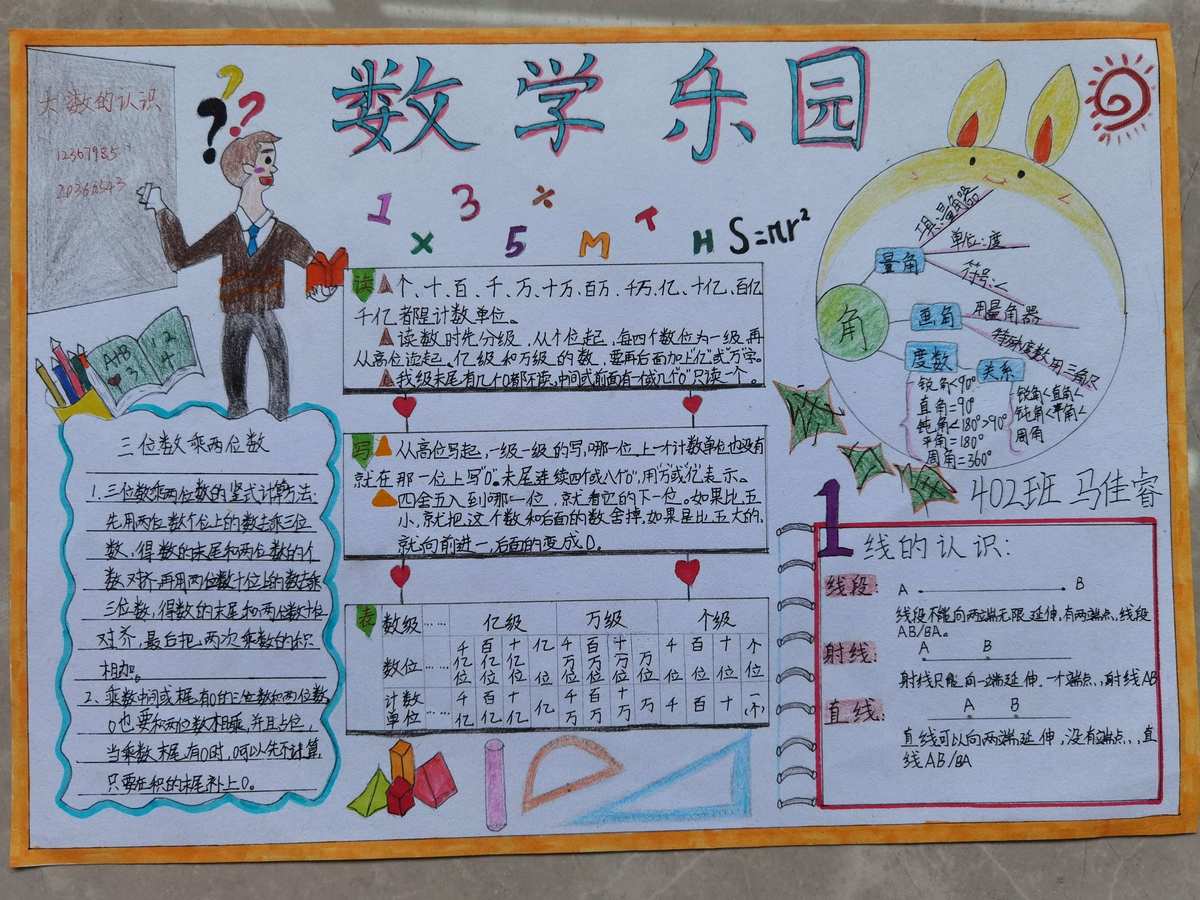 数学乐园
大数的认识
12367985
20366543
1 3 ÷
× 5 M T H S=πr²
三位数乘两位数
1.三位数乘两位数的竖式计算方法:
先用两位数个位上的数去乘三位
数,得数的末尾和两位数的个
数对齐,再用两位数十位上的数去乘
三位数,得数的末尾和两位数十位
对齐,最后把两次乘数的积
相加。
2、乘数中间或末尾有0的三位数和两位数,
0也要和两位数相乘,并且占位,
当乘数末尾有0时,0可以先不计算,
只要在积的末尾补上0。
读
个、十、百、千、万、十万、百万、千万、亿、十亿、百亿
千亿都是计数单位。
读数时先分级,从个位起,每四个数位为一级,再
从高位读起。亿级和万级的数,要再后面加上"亿"或"万"字。
我级末尾有几个0都不读,中间或前面有一个或几个"0"只读一个。
写
从高位写起,一级一级的写,哪一位上一个计数单位也没有
就在那一位上写"0"。末尾连续四个或八个"0",用"万"或"亿"表示。
四舍五入到哪一位,就看它的下一位。如果比五
小,就把这个数和后面的数舍掉,如果是比五大的,
就向前进一,后面的变成0。
表
数级 …… 亿级 万级 个级
数位 …… 千亿位 百亿位 十亿位 亿位 千万位 百万位 十万位 万位 千位 百位 十位 个位
计数单位 …… 千亿 百亿 十亿 亿 千万 百万 十万 万 千 百 十 一(个)
角
量角
工具:量角器
单位:度
符号:∠
画角
用量角器
特殊度数用三角尺
度数
锐角<90°
直角=90°
钝角<180°>90°
平角=180°
周角=360°
关系
锐角<直角<
钝角<平角<
周角
402班 马佳睿
1
线的认识:
线段: A B
线段不能向两端无限延伸,有两端点,线段
AB/BA。
射线: A B
射线只能向一端延伸,一个端点,射线AB
直线: A B
直线可以向两端延伸,没有端点,直
线AB/BA
A+B
3
1 2
4